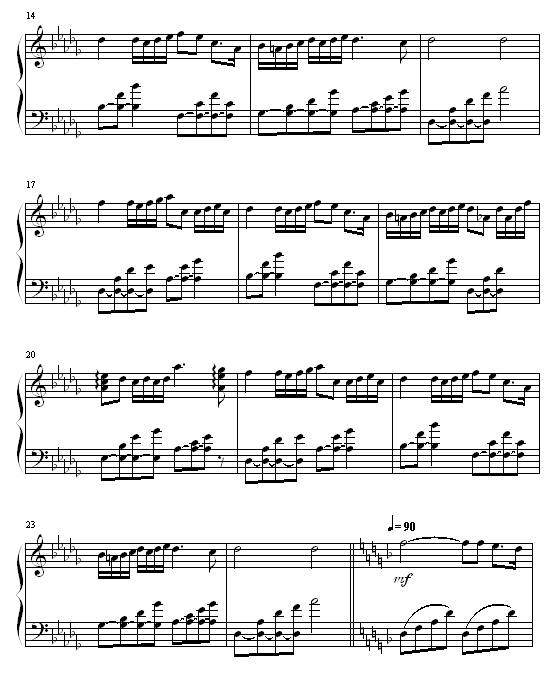 14
17
20
23
♩= 90
mf